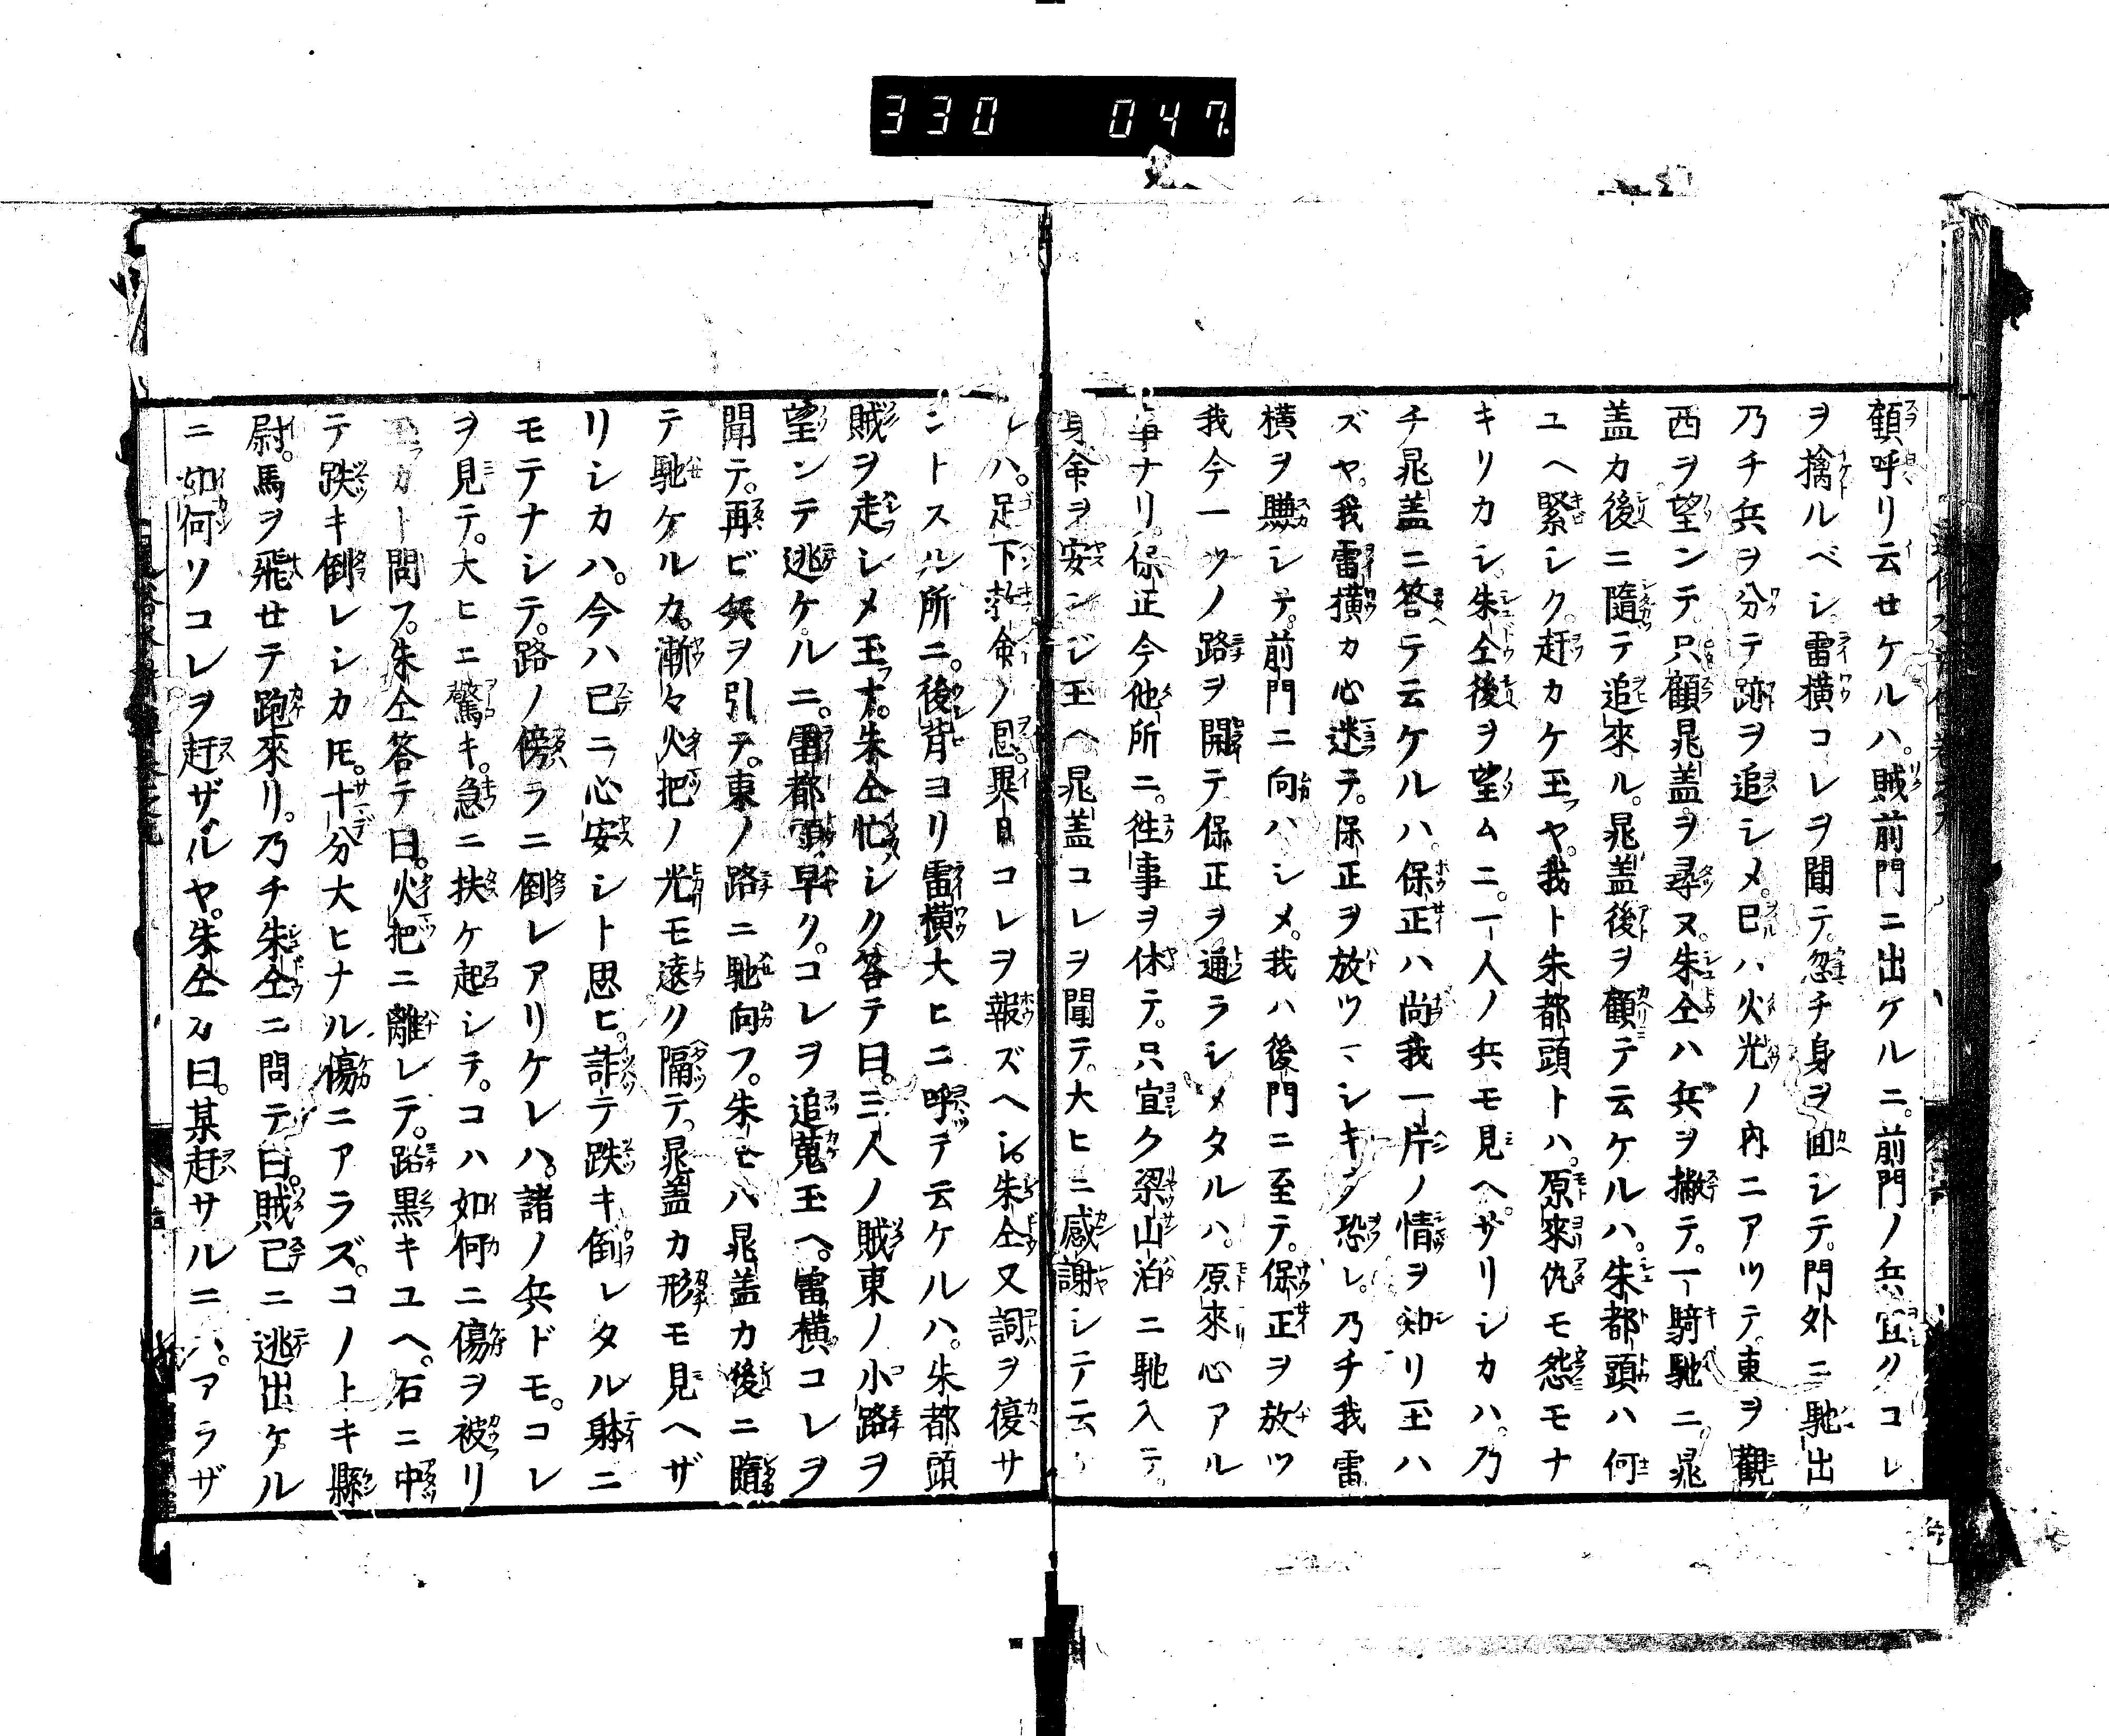 330 047
顧呼リ云セケルハ。賊前門ニ出ケルニ。前門ノ兵宜クコレ
ヲ擒ルベシ。雷横コレヲ聞テ。忽チ身ヲ回シテ。門外ニ馳出
乃チ兵ヲ分テ跡ヲ追シメ。已ハ火光ノ内ニアツテ。東ヲ觀
西ヲ望ンテ。只顧晁盖ヲ尋ヌ。朱仝ハ兵ヲ撇テ。一騎馳ニ。晁
盖カ後ニ隨テ追來ル。晁盖後ヲ顧テ云ケルハ。朱都頭ハ何
ユヘ緊シク。赶カケ玉フヤ。我ト朱都頭トハ。原來仇モ怨モナ
キリカシ。朱仝後ヲ望ムニ。一人ノ兵モ見ヘザリシカハ。乃
チ晁盖ニ答テ云ケルハ。保正ハ尚我一片ノ情ヲ知リ玉ハ
ズヤ。我雷横カ心迷テ。保正ヲ放ツマシキヲ恐レ。乃チ我雷
横ヲ賺シテ。前門ニ向ハシメ。我ハ後門ニ至テ。保正ヲ放ツ
我今一ツノ路ヲ開テ保正ヲ通ラシメタルハ。原來心アル
事ナリ。保正今他所ニ。徃事ヲ休テ。只宜ク梁山泊ニ馳入テ。
身命ヲ安ンジ玉ヘ晁盖コレヲ聞テ。大ヒニ感謝シテ云
レハ。足下救命ノ恩。異日コレヲ報ズヘシ。朱仝又詞ヲ復サ
ントスル所ニ。後背ヨリ雷横大ヒニ呼テ云ケルハ。朱都頭
賊ヲ走シメ玉フナ。朱仝忙シク答テ曰。三人ノ賊東ノ小路ヲ
望ンテ逃ケルニ。雷都頭。早ク。コレヲ追蒐玉ヘ。雷横コレヲ
聞テ。再ビ兵ヲ引テ。東ノ路ニ馳向フ。朱仝ハ晁盖カ後ニ隨
テ馳ケルカ。漸々火把ノ光モ遠ク隔テ。晁盖カ形モ見ヘザ
リシカハ。今ハ已ニ心安シト思ヒ。詐テ跌キ倒レタル躰ニ
モテナシテ。路ノ傍ラニ倒レアリケレハ。諸ノ兵ドモ。コレ
ヲ見テ。大ヒニ驚キ。急ニ扶ケ起シテ。コハ如何ニ傷ヲ被リ
玉フカト問フ。朱仝答テ曰。火把ニ離レテ。路黒キユヘ。石ニ中
テ跌キ倒レシカ𪜈。十分大ヒナル傷ニアラズ。コノトキ縣
尉。馬ヲ飛セテ跑來リ。乃チ朱仝ニ問テ曰。賊已ニ逃出ケル
ニ如何ソコレヲ赶ザルヤ。朱仝カ曰。某赶サルニハ。アラザ